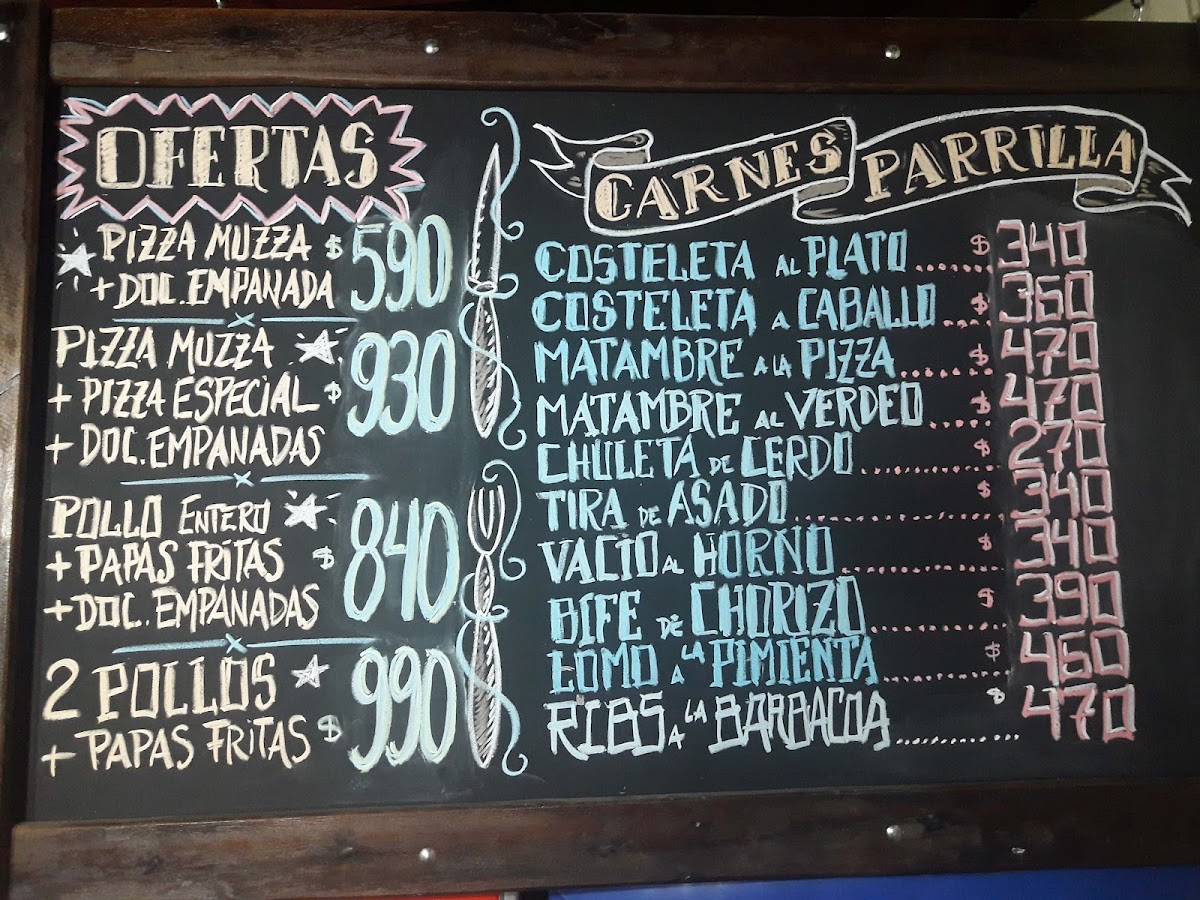 OFERTAS
PIZZA MUZZA $ 590
+ DOC. EMPANADA
PIZZA MUZZA
+ PIZZA ESPECIAL $ 930
+ DOC. EMPANADAS
POLLO ENTERO
+ PAPAS FRITAS $ 840
+ DOC. EMPANADAS
2 POLLOS
+ PAPAS FRITAS $ 990
CARNES PARRILLA
COSTELETA AL PLATO ...... $ 340
COSTELETA A CABALLO .... $ 360
MATAMBRE A LA PIZZA ....... $ 470
MATAMBRE AL VERDEO ..... $ 470
CHULETA DE CERDO ............ $ 270
TIRA DE ASADO .................. $ 340
VACIO AL HORNO .............. $ 340
BIFE DE CHORIZO ............. $ 390
LOMO A LA PIMIENTA ........... $ 460
RIBS A LA BARBACOA ............ $ 470